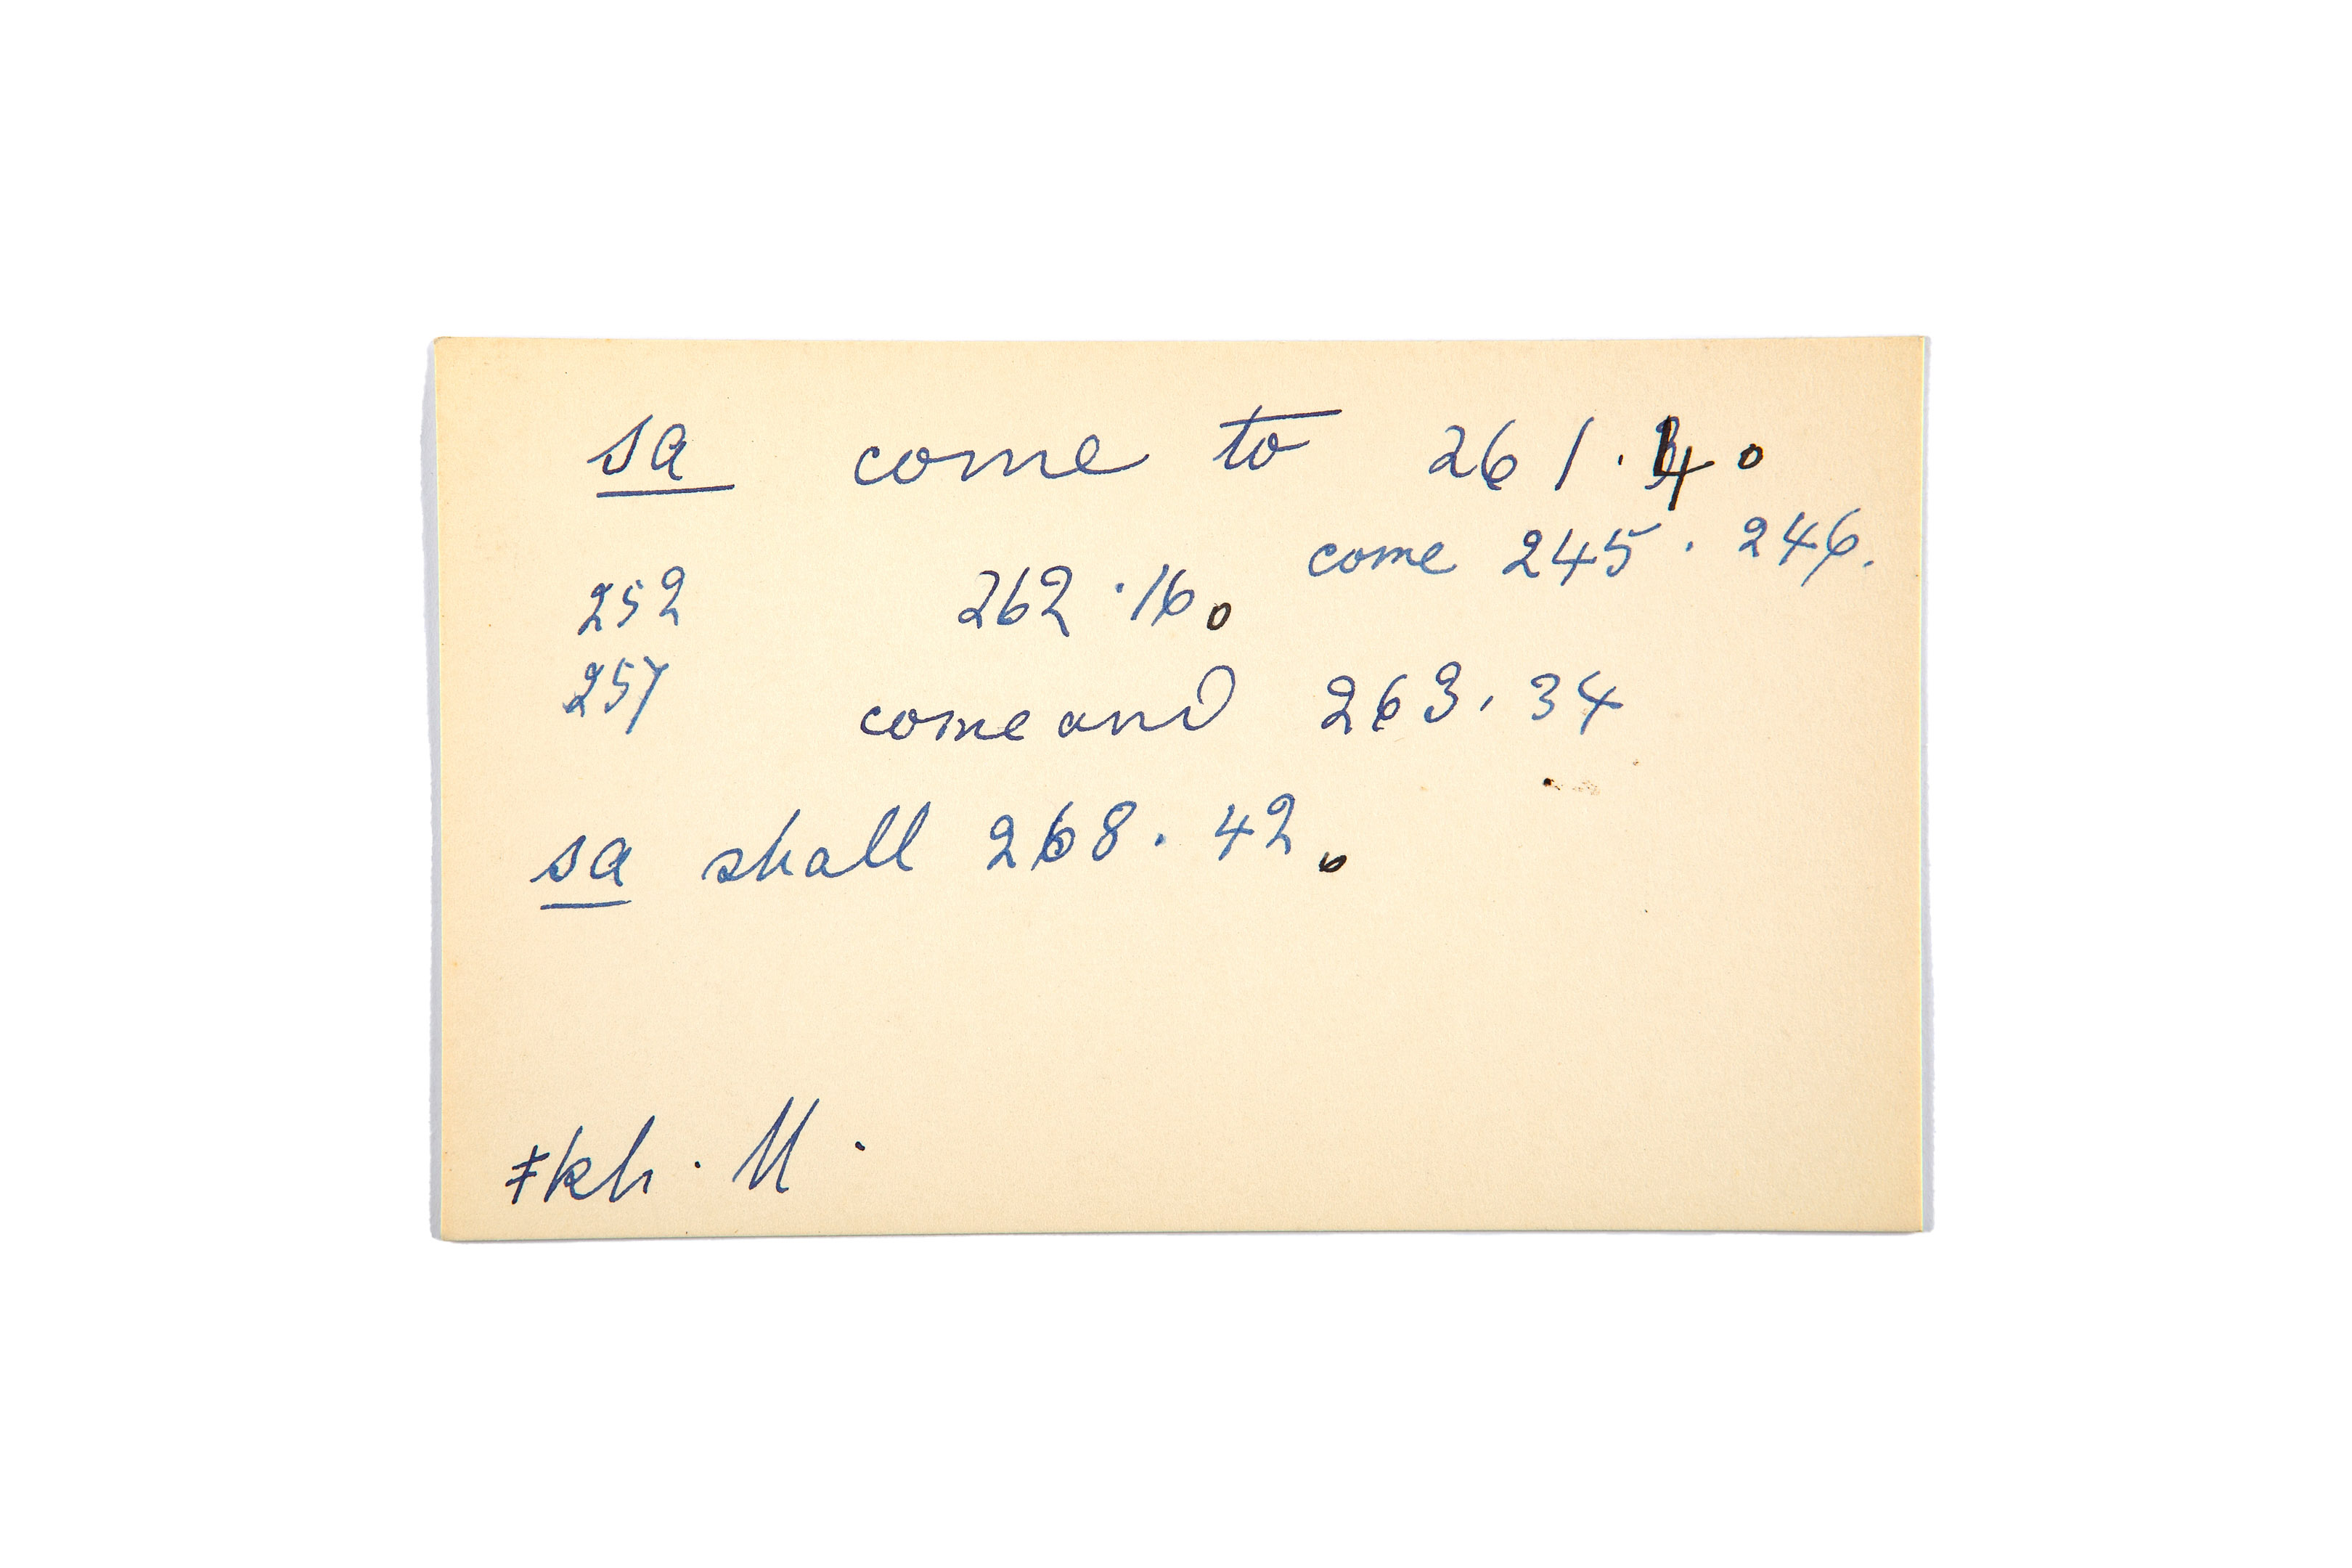 sa come to 261.4o
come 245. 246.
252 262.16o
257 come and 263. 34
sa shall 268. 42 o
ǂkh. M.